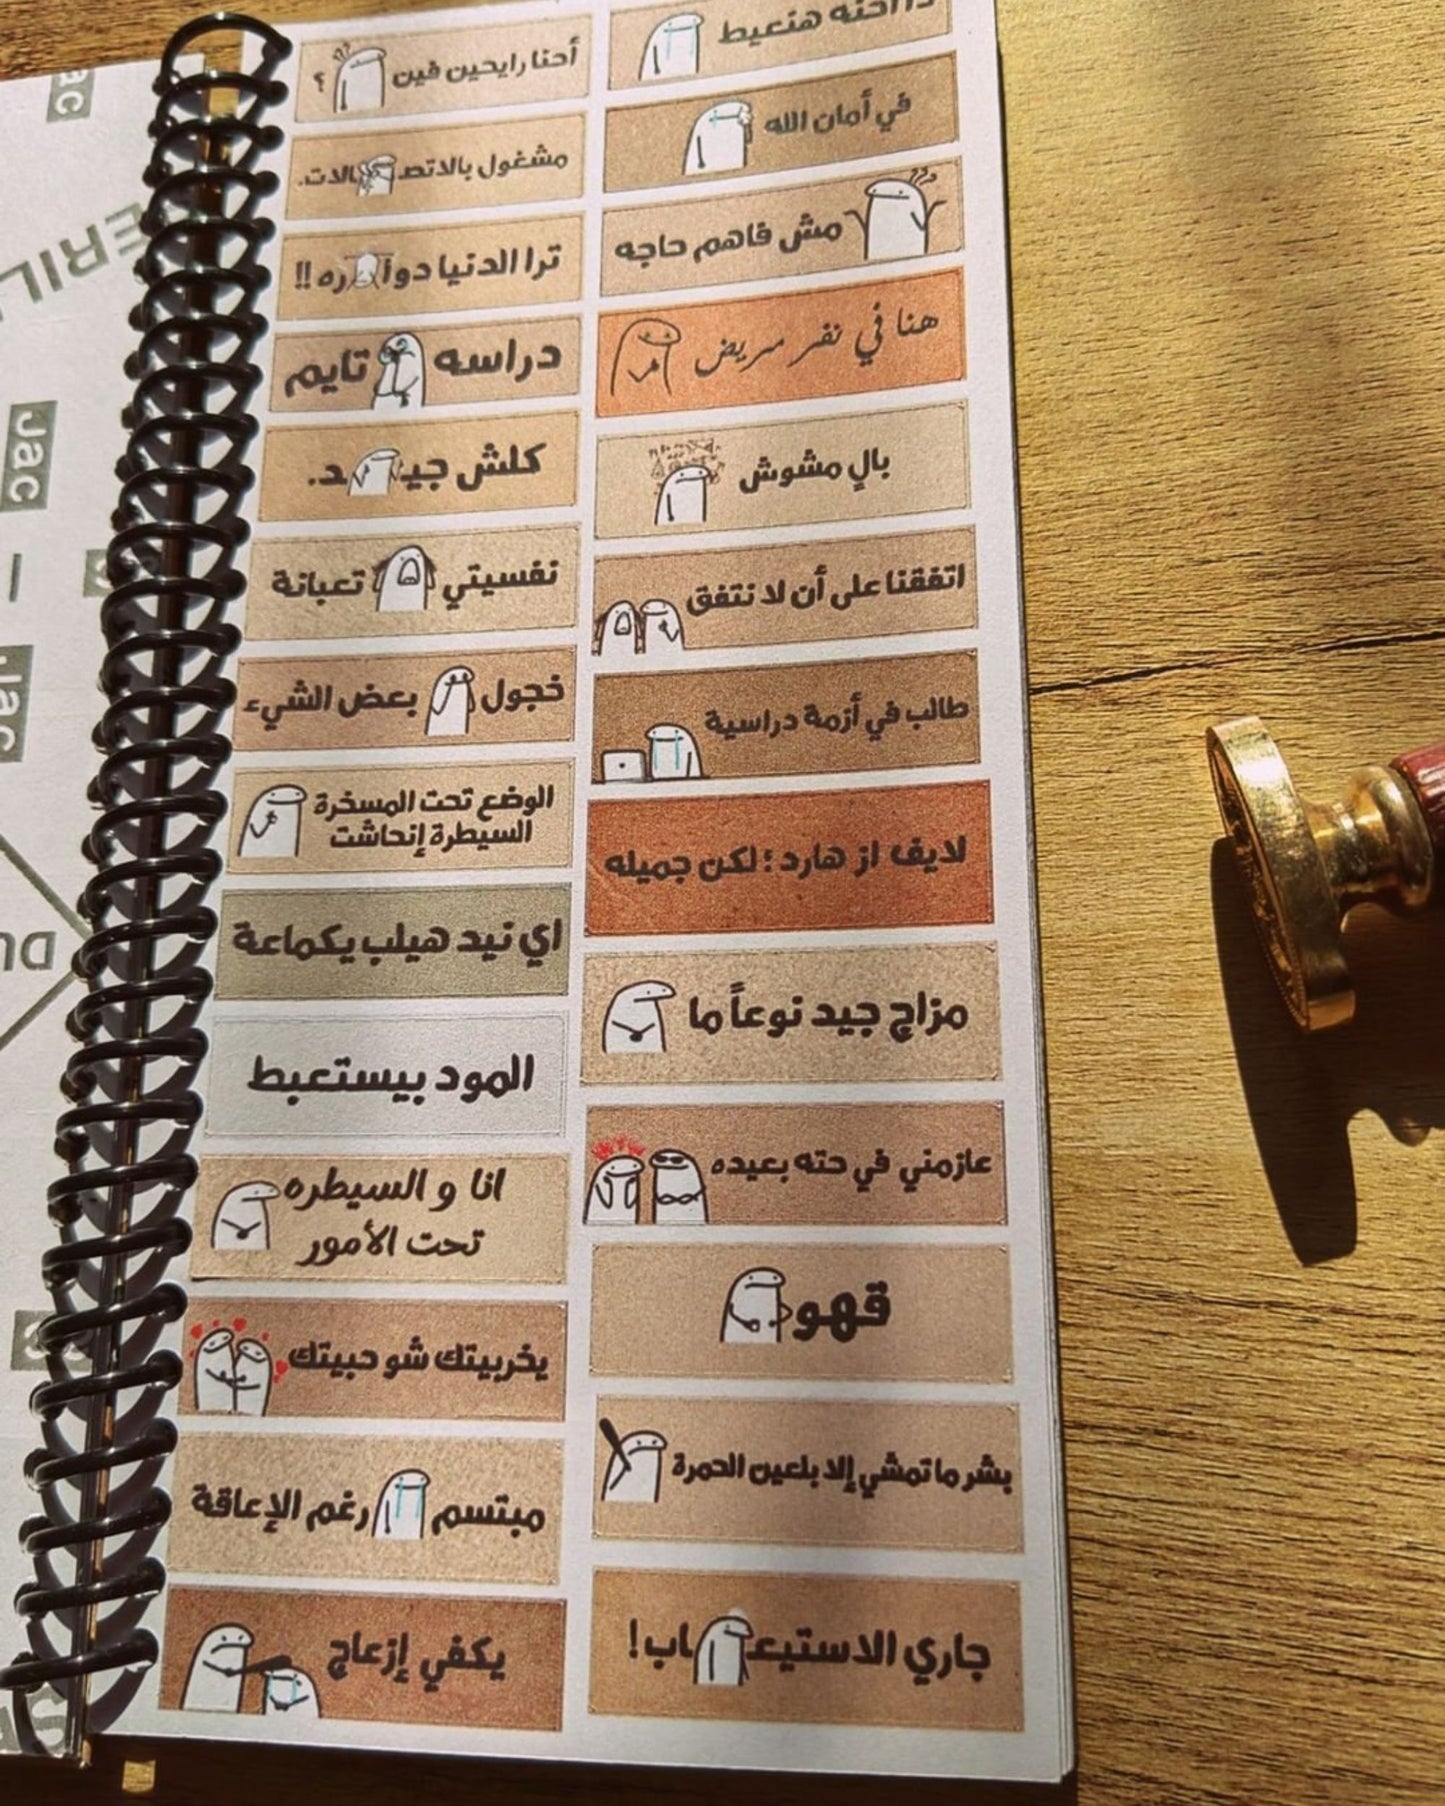 أحنا رايحين فين ؟
مشغول بالاتصالات.
ترا الدنيا دواره !!
دراسه تايم
كلش جيد.
نفسيتي تعبانة
خجول بعض الشيء
الوضع تحت المسخرة
السيطرة إنحاشت
اي نيد هيلب يكماعة
المود بيستعبط
انا و السيطره
تحت الأمور
يخربيتك شو حبيتك
مبتسم رغم الإعاقة
يكفي إزعاج
هنعيط
في أمان الله
مش فاهم حاجه
هنا في نفر مريض
بالٍ مشوش
اتفقنا على أن لا نتفق
طالب في أزمة دراسية
لايف از هارد ؛ لكن جميله
مزاج جيد نوعاً ما
عازمني في حته بعيده
قهو
بشر ماتمشي إلا بلعين الحمرة
جاري الاستيعاب!
Jac
Jac
Jac